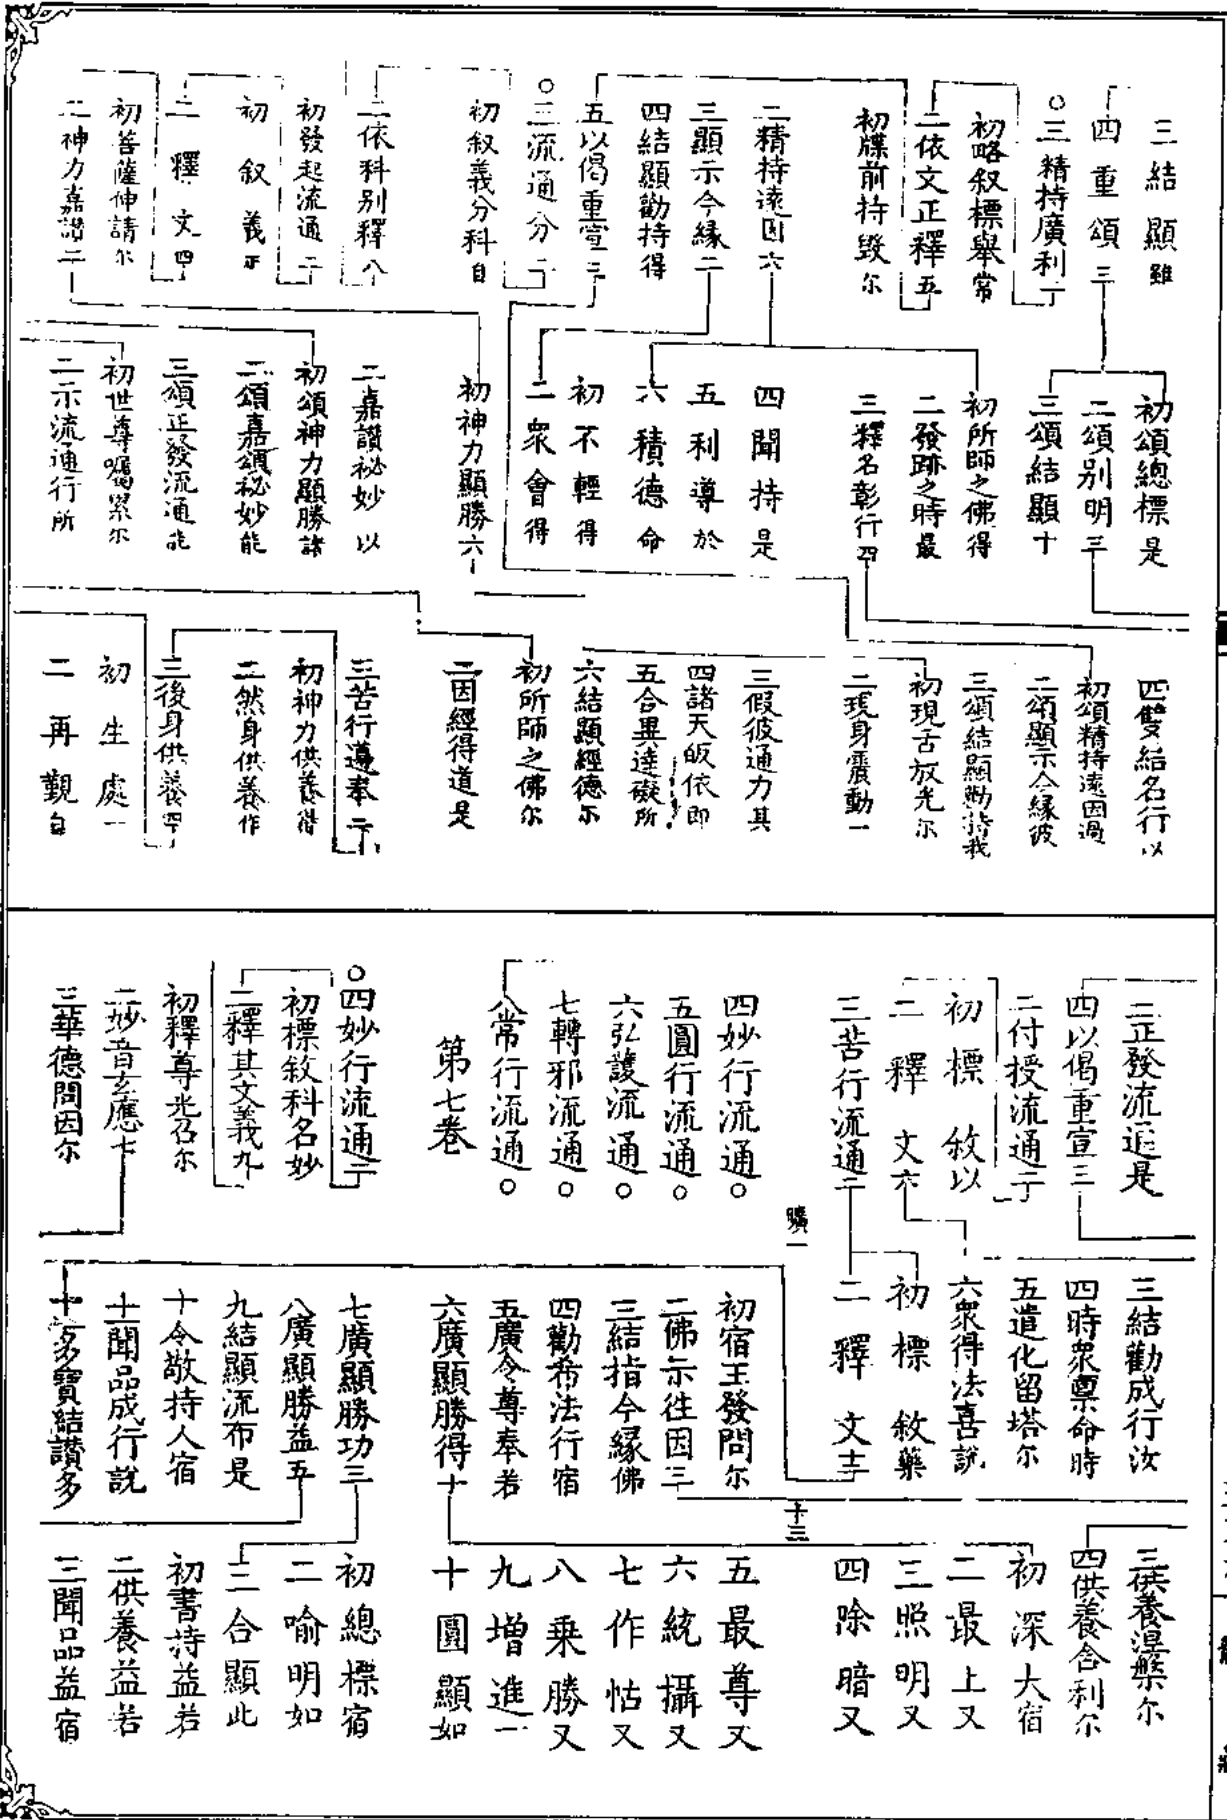 三結顯雖
四重頌三
○三精持廣利二
初略叙標舉常
二依文正釋五
初牒前持毀尔
二精持遠因六
三顯示今緣二
四結顯勸持得
五以偈重宣三
○三流通分二
初叙義分科自
二依科別釋八
初發起流通二
初叙義正
二釋文四
初菩薩伸請尔
二神力嘉讚二
初頌總標是
二頌別明三
三頌結顯十
初所師之佛得
二發跡之時最
三釋名彰行四
四聞持是
五利導於
六積德命
初不輕得
二衆會得
初神力顯勝六
二嘉讚祕妙以
初頌神力顯勝諸
二頌嘉頌祕妙能
三頌正發流通能
初世尊囑累尔
二示流通行所
四雙結名行以
初頌精持遠因過
二頌顯示今緣彼
三頌結顯勸持我
初現舌放光尔
二現身震動一
三假彼通力其
四諸天皈依即
五合異達礙所
六結顯經德尔
初所師之佛尔
二因經得道是
三苦行遵奉二
初神力供養
二然身供養作
三後身供養四
初生處一
二再覲自
二正發流通是
四以偈重宣三
二付授流通二
初標敘以
二釋文六
三苦行流通二
四妙行流通○
五圓行流通○
六弘護流通○
七轉邪流通○
八常行流通○
第七卷
○四妙行流通二
初標敘科名妙
二釋其文義九
初釋尊光召尔
二妙音玄應七
三華德問因尔
曠一
三結勸成行汝
四時衆稟命時
五遣化留塔尔
六衆得法喜說
初標敘藥
二釋文十二
初宿王發問尔
二佛示往因三
三結指今緣佛
四勸希法行宿
五廣令尊奉若
六廣顯勝得十
七廣顯勝功三
八廣顯勝益五
九結顯流布是
十令敬持人宿
十一聞品成行說
十二多寶結讚多
十三
三供養湼槃尔
四供養舍利尔
初深大宿
二最上又
三照明又
四除暗又
五最尊又
六統攝又
七作怙又
八乘勝又
九增進一
十圓顯如
初總標宿
二喻明如
三合顯此
初書持益若
二供養益若
三聞品益宿